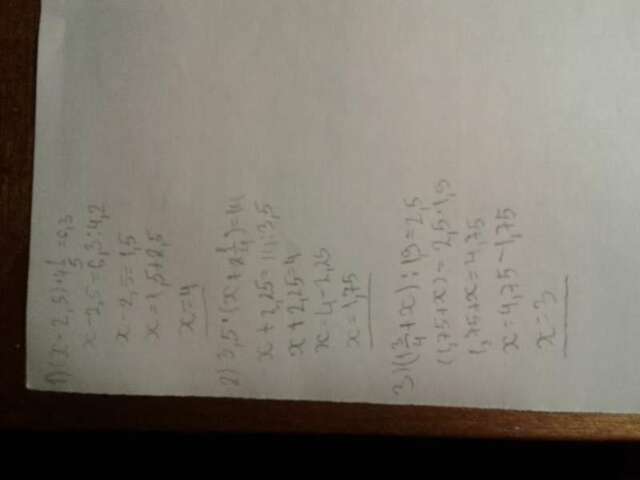 1) (x-2,5)·4 1/5=6,3
x-2,5=6,3:4,2
x-2,5=1,5
x=1,5+2,5
x=4
2) 3,5·(x+2 1/4)=14
x+2,25=14:3,5
x+2,25=4
x=4-2,25
x=1,75
3) (1 3/4+x):1,9=2,5
(1,75+x)=2,5·1,9
1,75+x=4,75
x=4,75-1,75
x=3